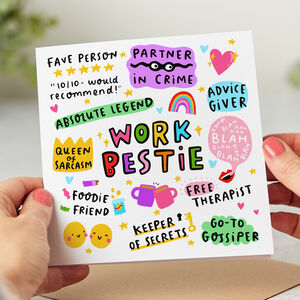 FAVE PERSON
"10/10 - would
recommend!"
PARTNER
IN CRIME
ABSOLUTE LEGEND
ADVICE
GIVER
WORK
BESTIE
QUEEN
OF
SARCASM
BLAH
BLAH
BLAH
BLAH
BLAH
FOODIE
FRIEND
FREE
THERAPIST
KEEPER
OF SECRETS
GO-TO
GOSSIPER